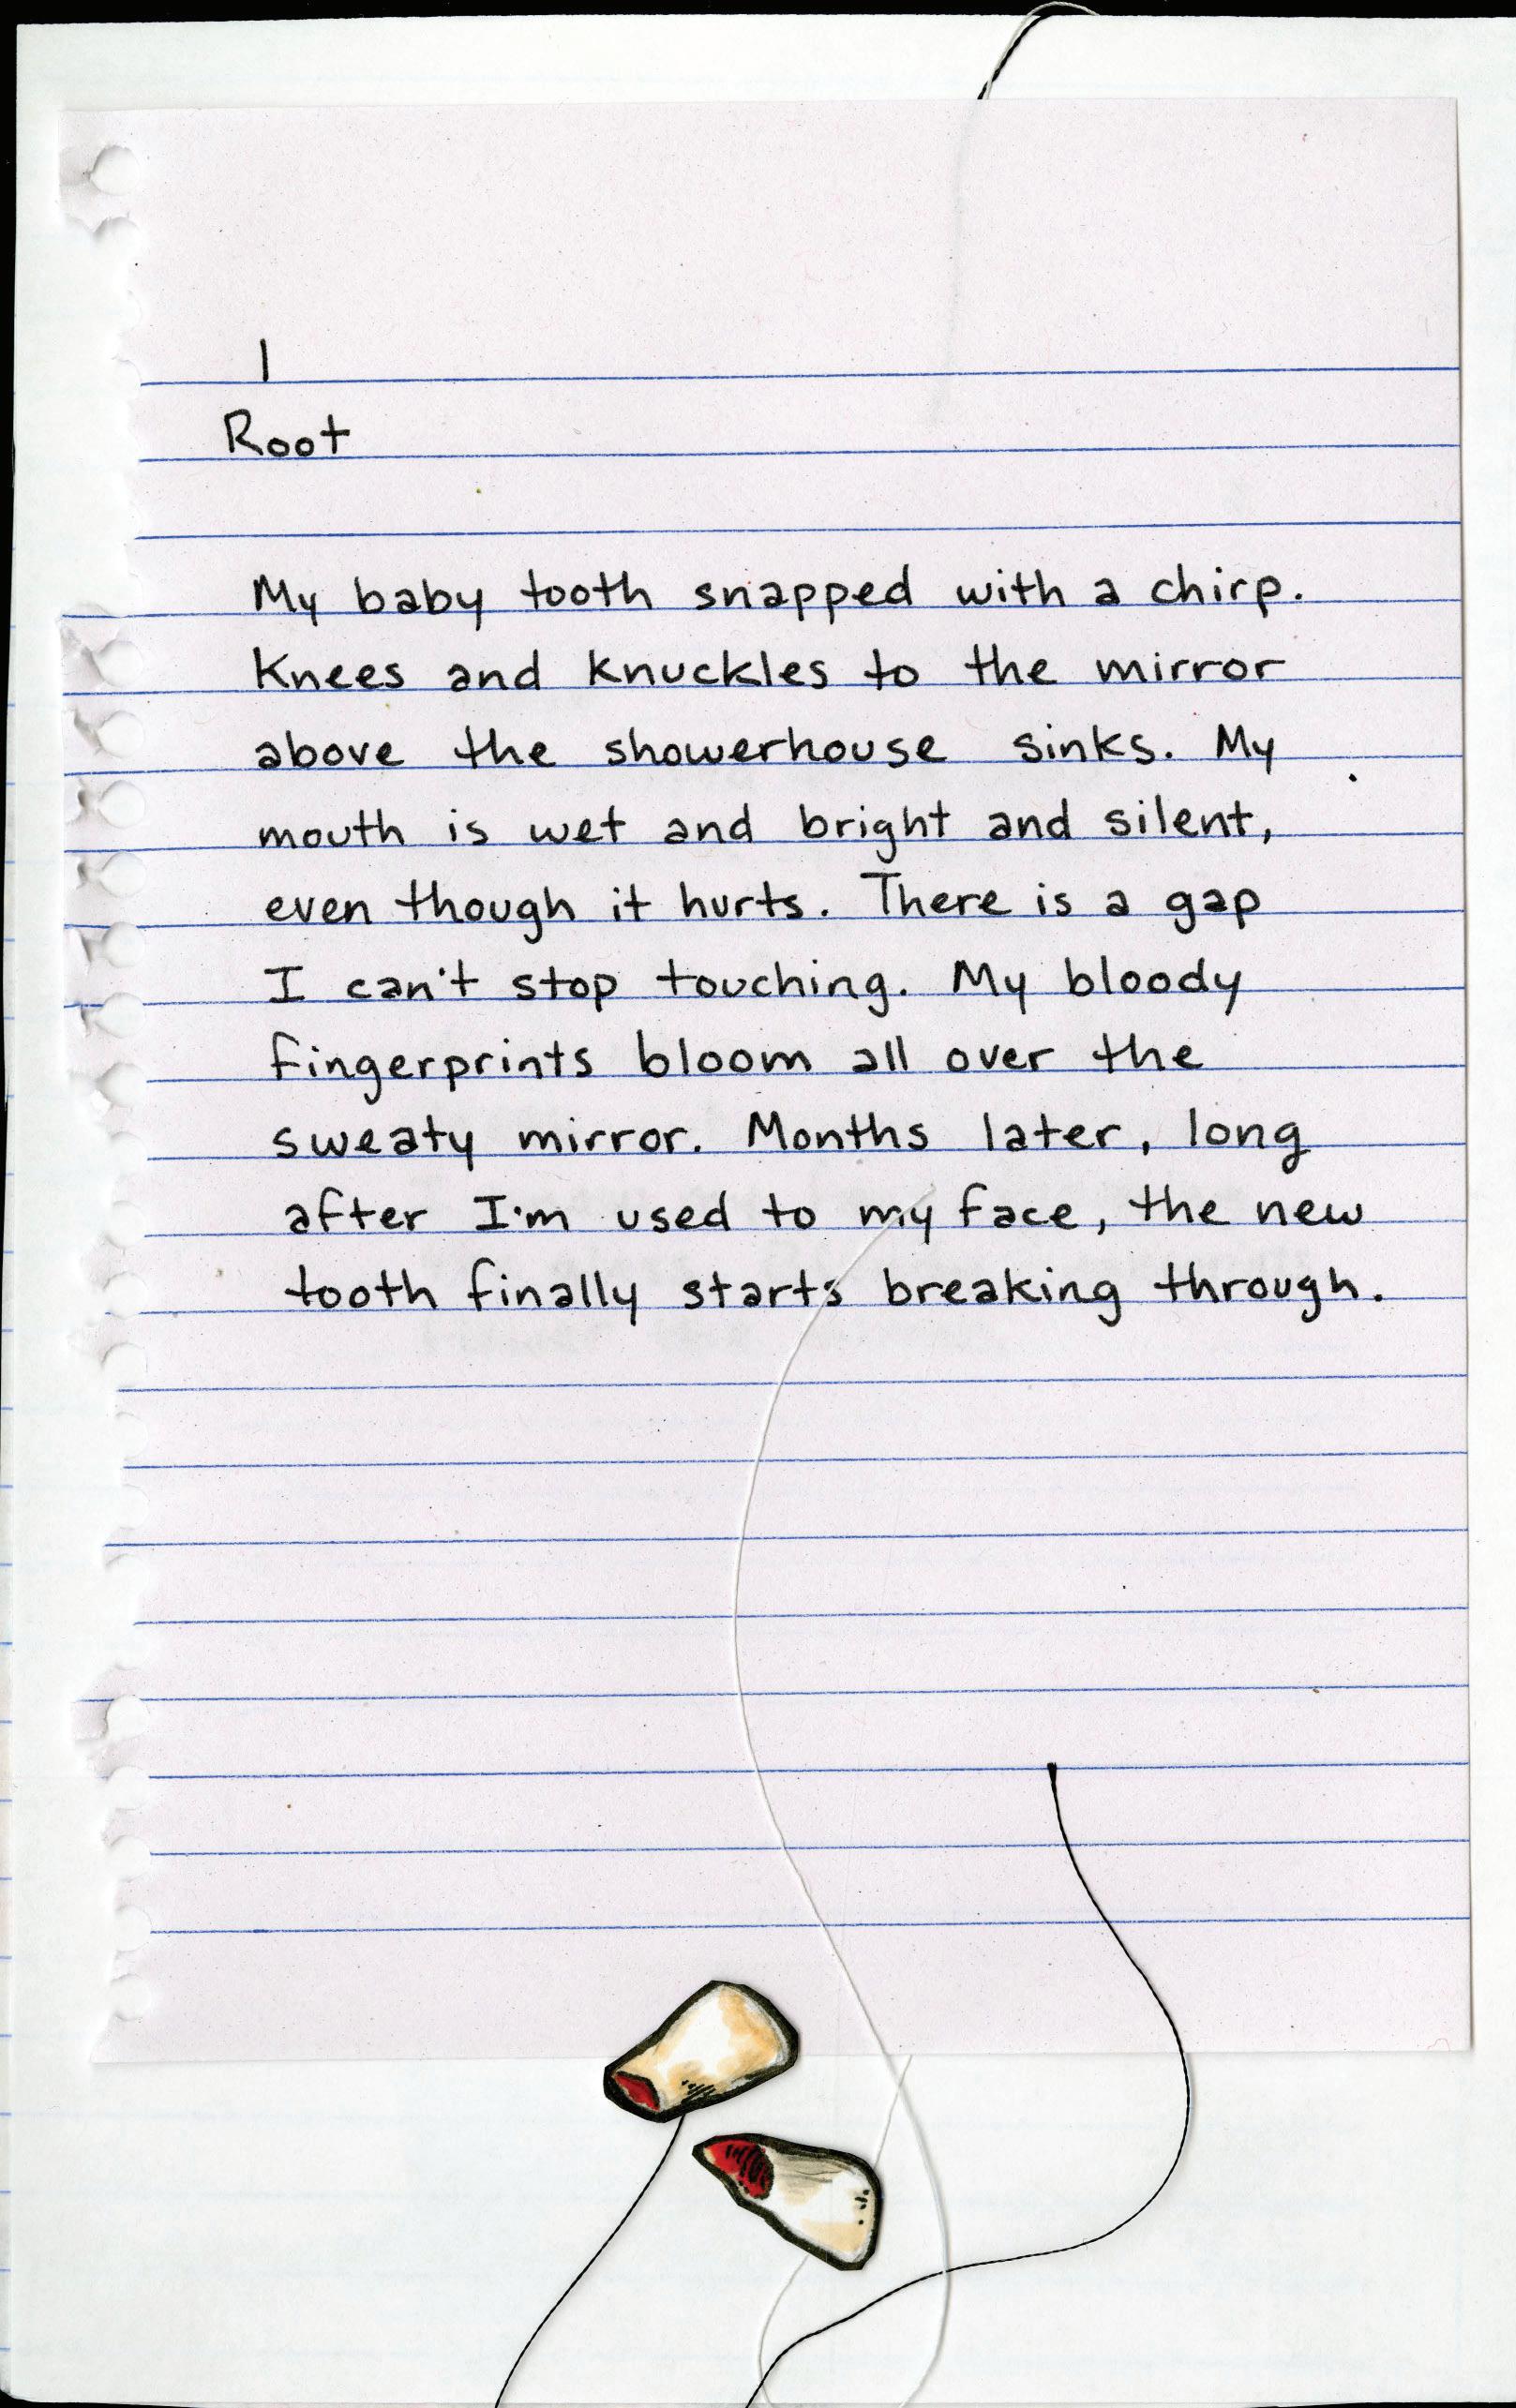 1
Root
My baby tooth snapped with a chirp.
Knees and knuckles to the mirror
above the showerhouse sinks. My
mouth is wet and bright and silent,
even though it hurts. There is a gap
I can't stop touching. My bloody
fingerprints bloom all over the
sweaty mirror. Months later, long
after I'm used to my face, the new
tooth finally starts breaking through.